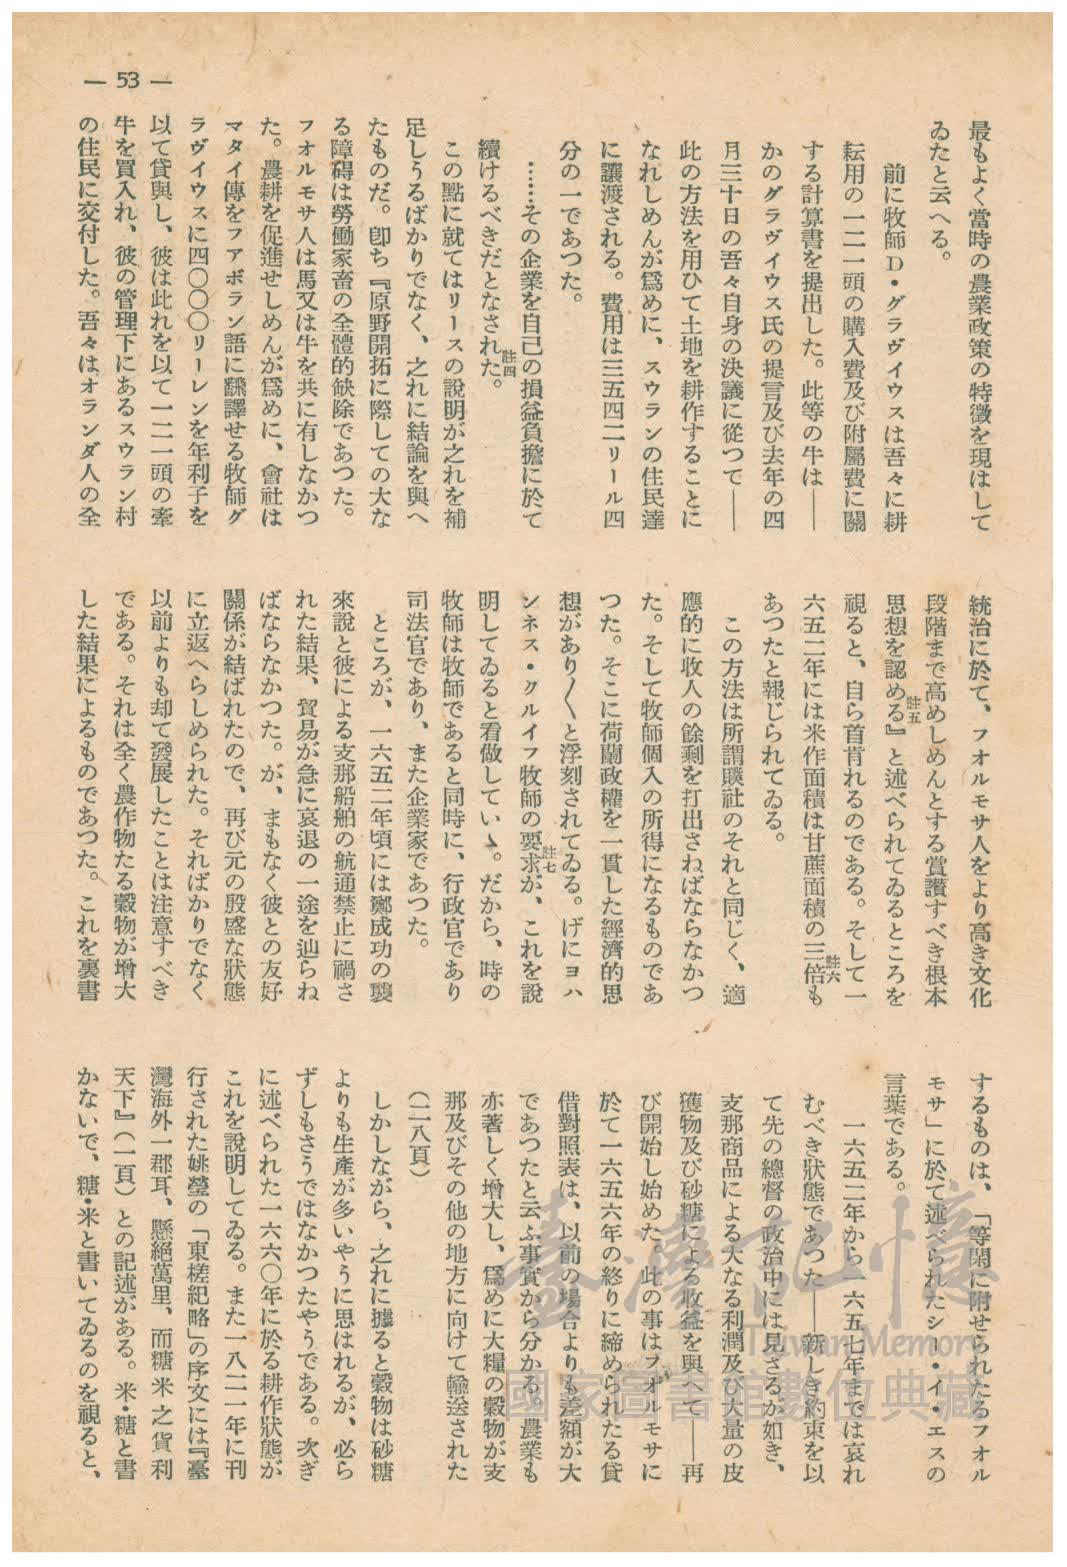 — 53 —
最もよく當時の農業政策の特徵を現はして
ゐたと云へる。
前に牧師D・グラヴイウスは吾々に耕
耘用の一二一頭の購入費及び附屬費に關
する計算書を提出した。此等の牛は——
かのグラヴイウス氏の提言及び去年の四
月三十日の吾々自身の決議に從つて——
此の方法を用ひて土地を耕作することに
なれしめんが爲めに、スウランの住民達
に讓渡される。費用は三五四二リール四
分の一であつた。
……その企業を自己の損益負擔に於て
續けるべきだとなされた。註四
この點に就てはリースの說明が之れを補
足しうるばかりでなく、之れに結論を與へ
たものだ。卽ち『原野開拓に際しての大な
る障碍は勞働家畜の全體的缺除であつた。
フオルモサ人は馬又は牛を共に有しなかつ
た。農耕を促進せしめんが爲めに、會社は
マタイ傳をフアボラン語に飜譯せる牧師グ
ラヴイウスに四〇〇〇リーレンを年利子を
以て貸與し、彼は此れを以て一二一頭の牽
牛を買入れ、彼の管理下にあるスウラン村
の住民に交付した。吾々はオランダ人の全
統治に於て、フオルモサ人をより高き文化
段階まで高めしめんとする賞讚すべき根本
思想を認める』註五と述べられてゐるところを
視ると、自ら首肯れるのである。そして一
六五二年には米作面積は甘蔗面積の三倍註六も
あつたと報じられてゐる。
この方法は所謂贌社のそれと同じく、適
應的に收人の餘剩を打出さねばならなかつ
た。そして牧師個入の所得になるものであ
つた。そこに荷蘭政權を一貫した經濟的思
想があり〱と浮刻されてゐる。げにヨハ
ンネス・クルイフ牧師の要求註七が、これを說
明してゐると看做していゝ。だから、時の
牧師は牧師であると同時に、行政官であり
司法官であり、また企業家であつた。
ところが、一六五二年頃には鄭成功の襲
來說と彼による支那船舶の航通禁止に禍さ
れた結果、貿易が急に哀退の一途を辿らね
ばならなかつた。が、まもなく彼との友好
關係が結ばれたので、再び元の殷盛な狀態
に立返へらしめられた。そればかりでなく
以前よりも却て發展したことは注意すべき
である。それは全く農作物たる穀物が增大
した結果によるものであつた。これを裏書
するものは、「等閑に附せられたるフオル
モサ」に於て述べられたシー・イ・エスの
言葉である。
一六五二年から一六五七年までは哀れ
むべき狀態であつた——新しき約束を以
て先の總督の政治中には見ざるが如き、
支那商品による大なる利潤及び大量の皮
獲物及び砂糖による收益を與へて——再
び開始し始めた。此の事はフオルモサに
於て一六五六年の終りに締められたる貸
借對照表は、以前の場合よりも差額が大
であつたと云ふ事實から分かる。農業も
亦著しく增大し、爲めに大糧の穀物が支
那及びその他の地方に向けて輸送された
(二八頁)
しかしながら、之れに據ると穀物は砂糖
よりも生產が多いやうに思はれるが、必ら
ずしもさうではなかつたやうである。次ぎ
に述べられた一六六〇年に於る耕作狀態が
これを說明してゐる。また一八二一年に刊
行された姚瑩の「東槎紀略」の序文には『臺
灣海外一郡耳、懸絕萬里、而糖米之貨利
天下』(一頁)との記述がある。米・糖と書
かないで、糖・米と書いてゐるのを視ると、
臺灣記憶
Taiwan Memory
國家圖書館數位典藏